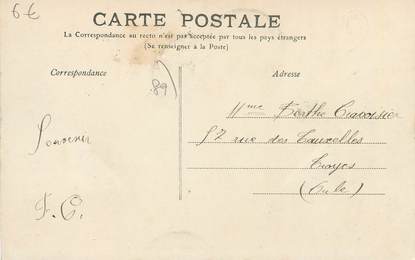 6€
CARTE POSTALE
La Correspondance au recto n'est pas acceptée par tous les pays étrangers
(Se renseigner à la Poste)
Correspondance
Adresse
89
Mme Berthe
57 rue des Tauxelles
Troyes
(Aube)
Souvenir
F. C.